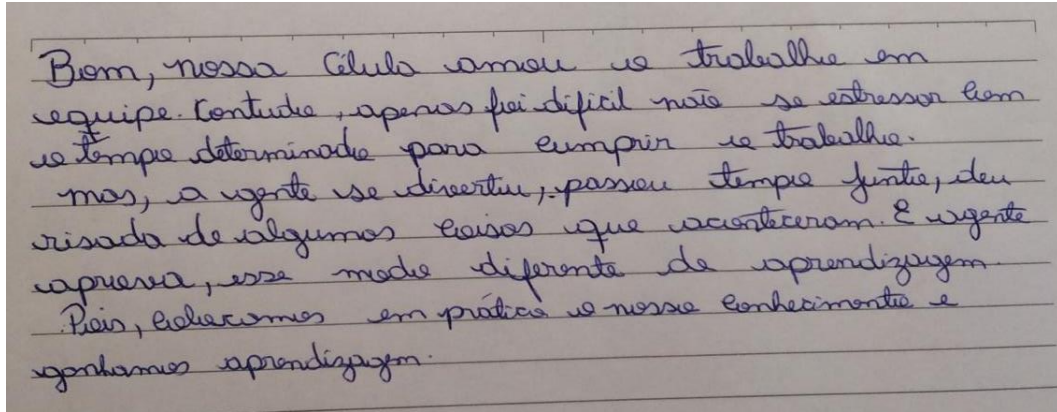 Bom, nossa Célula amou o trabalho em
equipe. Contudo, apenas foi dificil não se estressar com
o tempo determinado para cumprir o trabalho.
mas, a gente se divertiu, passou tempo junto, deu
risada de algumas coisas que aconteceram. E agente
aprova, esse modo diferente de aprendizagem.
Pois, colocamos em prática o nosso conhecimento e
ganhamos aprendizagem.